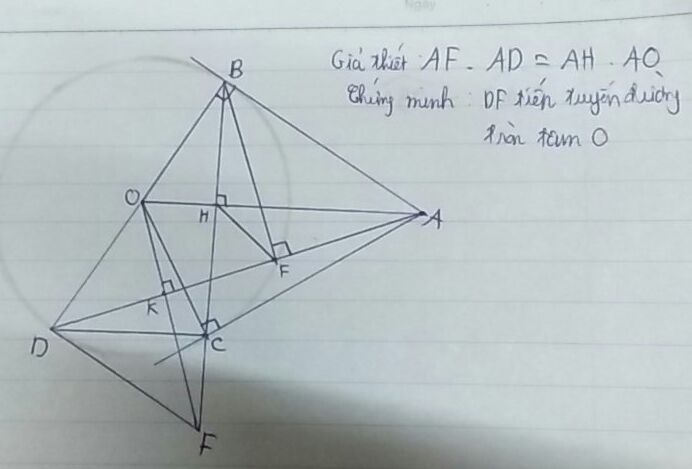 Ngày
Giả thiết : AF . AD = AH . AO
Chứng minh : DF tiếp tuyến đường
tròn tâm O
B
O
H
A
F
K
D
C
F